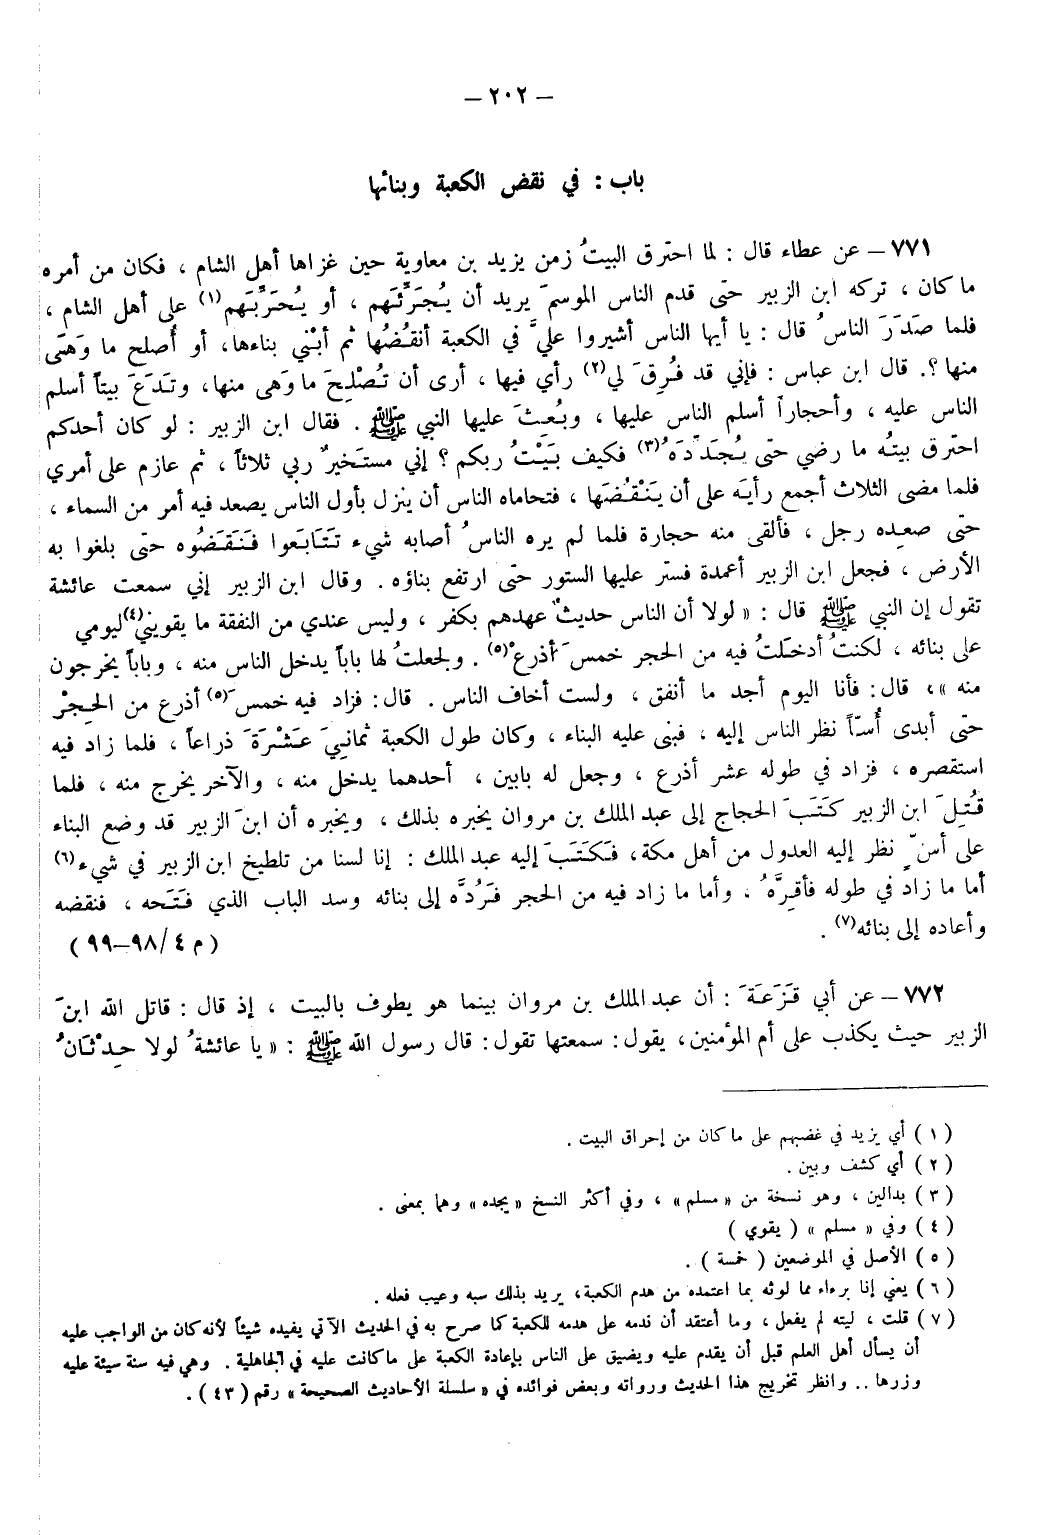 – ٢٠٢ –
باب : في نقض الكعبة وبنائها
٧٧١ – عن عطاء قال : لما احترق البيتُ زمن يزيد بن معاوية حين غزاها أهل الشام ، فكان من أمره
ما كان ، تركه ابن الزبير حتى قدم الناس الموسمَ يريد أن يُجَرِّئَهم ، أو يُحَرِّبَهم(١) على أهل الشام ،
فلما صَدَرَ الناسُ قال : يا أيها الناس أشيروا عليَّ في الكعبة أنقُضُها ثم أبْني بناءها، أو أُصلح ما وَهَى
منها ؟. قال ابن عباس : فإني قد فُرِقَ لي(٢) رأي فيها ، أرى أن تُصْلِحَ ما وَهى منها، وتَدَعَ بيتاً أسلم
الناس عليه ، وأحجاراً أسلم الناس عليها ، وبُعثَ عليها النبي ﷺ . فقال ابن الزبير : لو كان أحدكم
احترق بيتُه ما رضي حتى يُجَدِّدَهُ(٣) فكيف بَيْتُ ربكم ؟ إني مستَخيرٌ ربي ثلاثاً ، ثم عازم على أمري
فلما مضى الثلاث أجمع رأيَه على أن يَنْقُضَها ، فتحاماه الناس أن ينزل بأول الناس يصعد فيه أمر من السماء ،
حتى صعِده رجل ، فألقى منه حجارة فلما لم يره الناسُ أصابه شيء تَتَابَعوا فَنَقَضُوه حتى بلغوا به
الأرض ، فجعل ابن الزبير أعمدة فستر عليها الستور حتى ارتفع بناؤه . وقال ابن الزبير إني سمعت عائشة
تقول إن النبي ﷺ قال : « لولا أن الناس حديثٌ عهدهم بكفر ، وليس عندي من النفقة ما يقويني(٤) ليومي
على بنائه ، لكنتُ أدخَلتُ فيه من الحجر خمسَ أذرعْ(٥) . ولجعلتُ لها باباً يدخل الناس منه ، وباباً يخرجون
منه »، قال : فأنا اليوم أجد ما أنفق ، ولست أخاف الناس . قال : فزاد فيه خمسَ(٥) أذرع من الحِجرْ
حتى أبدى أُسّاً نظر الناس إليه ، فبنى عليه البناء ، وكان طول الكعبة ثمانيَ عَشْرَةَ ذراعاً ، فلما زاد فيه
استقصره ، فزاد في طوله عشر أذرع ، وجعل له بابين ، أحدهما يدخل منه ، والآخر يخرج منه ، فلما
قُتِلَ ابن الزبير كَتَبَ الحجاج إلى عبد الملك بن مروان يخبره بذلك ، ويخبره أن ابنَ الزبير قد وضع البناء
على أسٍّ نظر إليه العدول من أهل مكة، فَكَتَبَ إليه عبد الملك : إنا لسنا من تلطيخ ابن الزبير في شيء(٦)
أما ما زاد في طوله فأقِرَّهُ ، وأما ما زاد فيه من الحجر فَرُدَّه إلى بنائه وسد الباب الذي فَتَحه ، فنقضه
وأعاده إلى بنائه(٧) .
( م ٤/ ٩٨–٩٩ )
٧٧٢ – عن أبي قَزَعَةَ : أن عبد الملك بن مروان بينما هو يطوف بالبيت ، إذ قال : قاتل الله ابنَ
الزبير حيث يكذب على أم المؤمنين، يقول : سمعتها تقول : قال رسول الله ﷺ : « يا عائشةُ لولا حِدْثَانُ
( ١ ) أي يزيد في غضبهم على ما كان من إحراق البيت .
( ٢ ) أي كشف وبين .
( ٣ ) بدالين ، وهو نسخة من « مسلم » ، وفي أكثر النسخ « يجده » وهما بمعنى .
( ٤ ) وفي « مسلم » ( يقوي )
( ٥ ) الأصل في الموضعين ( خمسة ) .
( ٦ ) يعني إنا برءاء مما لوثه بما اعتمده من هدم الكعبة، يريد بذلك سبه وعيب فعله .
( ٧ ) قلت ، ليته لم يفعل ، وما أعتقد أن ندمه على هدمه للكعبة كما صرح به في الحديث الآتي يفيده شيئاً لأنه كان من الواجب عليه
أن يسأل أهل العلم قبل أن يقدم عليه ويضيق على الناس بإعادة الكعبة على ما كانت عليه في الجاهلية . وهي فيه سنة سيئة عليه
وزرها .. وانظر تخريج هذا الحديث ورواته وبعض فوائده في « سلسلة الأحاديث الصحيحة » رقم ( ٤٣ ) .